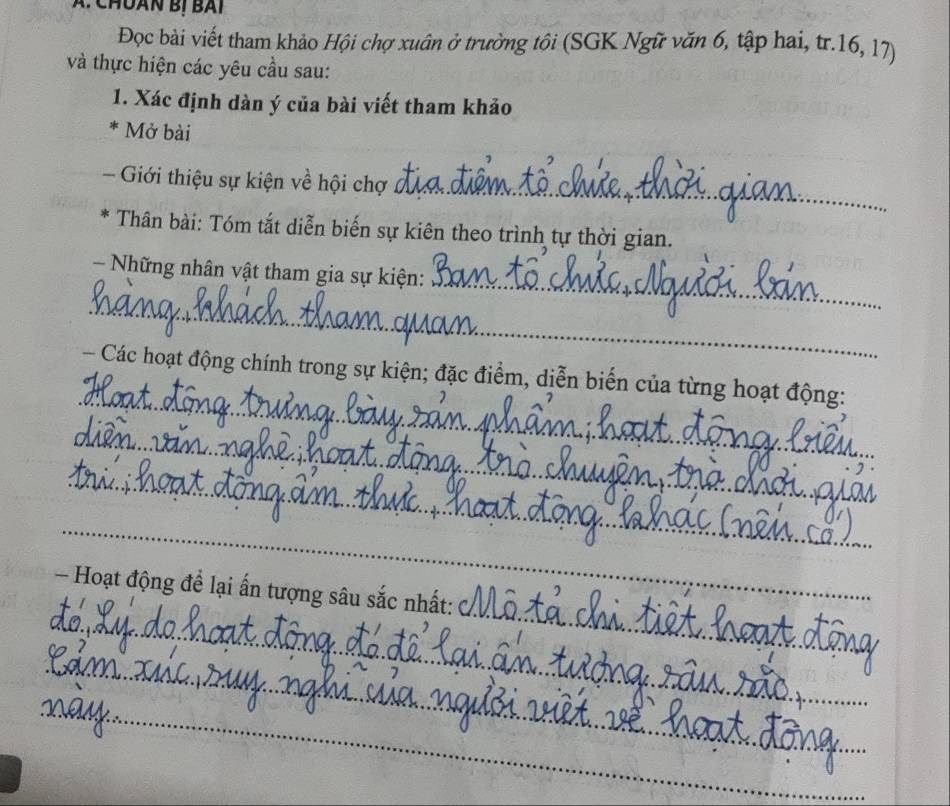 A. CHUẨN BỊ BÀI
Đọc bài viết tham khảo Hội chợ xuân ở trường tôi (SGK Ngữ văn 6, tập hai, tr.16, 17)
và thực hiện các yêu cầu sau:
1. Xác định dàn ý của bài viết tham khảo
* Mở bài
– Giới thiệu sự kiện về hội chợ địa điểm tổ chức, thời gian
* Thân bài: Tóm tắt diễn biến sự kiên theo trình tự thời gian.
– Những nhân vật tham gia sự kiện: Ban tổ chức, Người bán
hàng, khách tham quan
– Các hoạt động chính trong sự kiện; đặc điểm, diễn biến của từng hoạt động:
Hoạt động trưng bày sản phẩm; hoạt động biểu
diễn văn nghệ; hoạt động trò chuyện, trò chơi giải
trí; hoạt động ẩm thực, hoạt động khác (nếu có)
– Hoạt động để lại ấn tượng sâu sắc nhất: Mô tả chi tiết hoạt động
đó, Lý do hoạt động đó để lại ấn tượng sâu sắc,
Cảm xúc, suy nghĩ của người viết về hoạt động
này